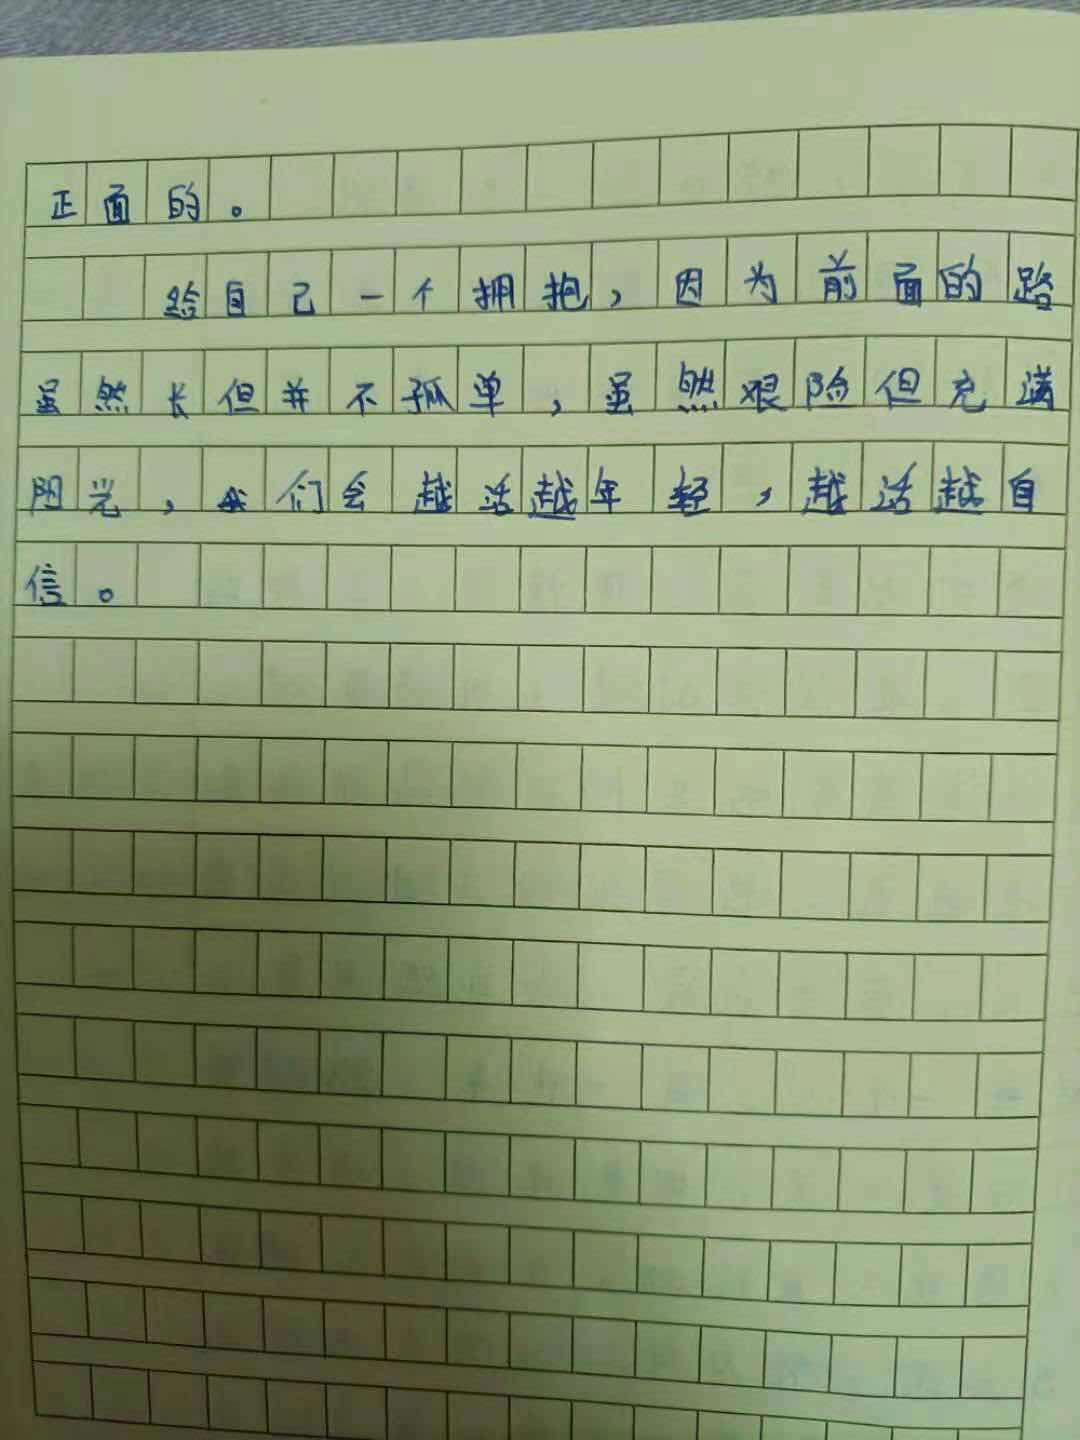 正面的。
给自己一个拥抱，因为前面的路
虽然长但并不孤单，虽然艰险但充满
阳光，我们会越活越年轻，越活越自
信。